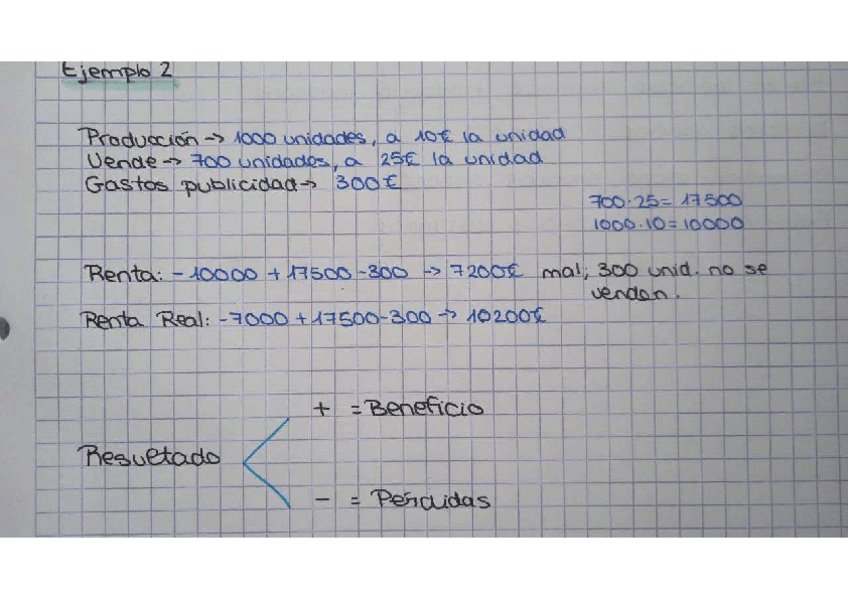 Ejemplo 2
Producción → 1000 unidades, a 10€ la unidad
Vende → 700 unidades, a 25€ la unidad
Gastos publicidad → 300€
700·25 = 17500
1000·10 = 10000
Renta: -10000 + 17500 - 300 → 7200€ mal; 300 unid. no se
venden.
Renta Real: -7000 + 17500 - 300 → 10200€
+ = Beneficio
Resultado
- = Pérdidas